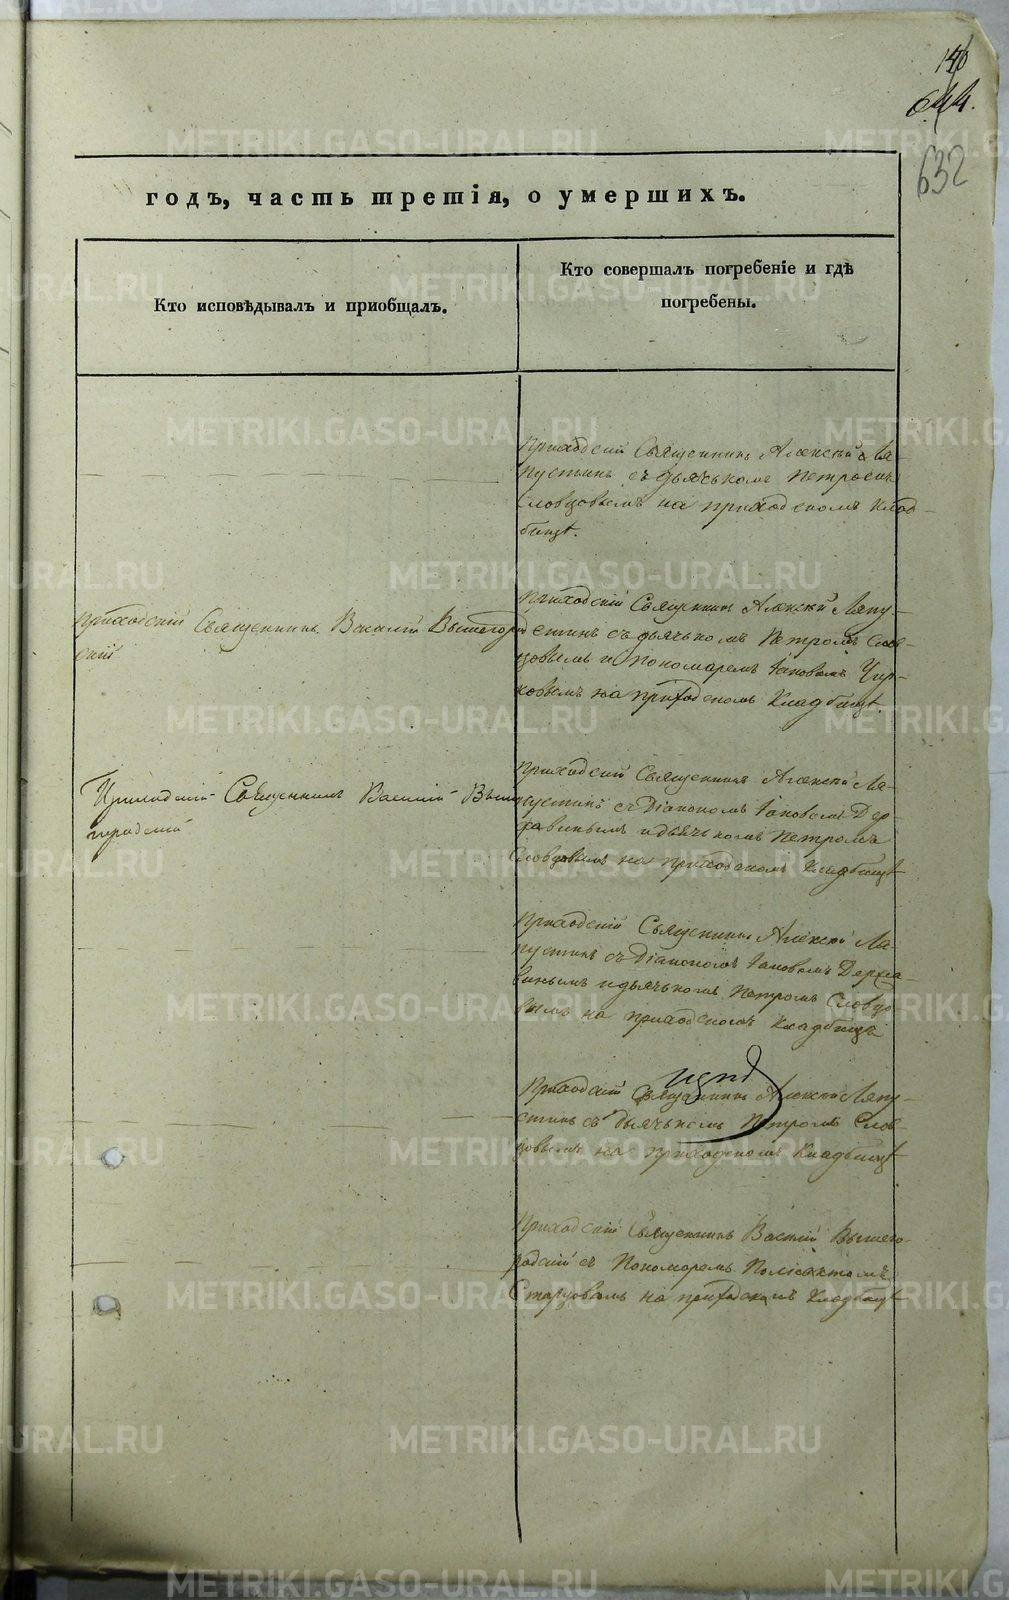 140
644.
632
годъ, часть третія, о умершихъ.
Кто исповѣдывалъ и приобщалъ.
Кто совершалъ погребеніе и гдѣ
погребены.
Приходскій Священникъ Алексѣй Ла-
пустинъ съ дьячькомъ Петромъ
Словцовымъ на приходскомъ клад-
бищѣ.
Приходскій Священникъ Василій Вышегород
скій
Приходскій Священникъ Алексѣй Лапу-
стинъ съ дьячькомъ Петромъ Слов-
цовымъ и Пономаремъ Іаковомъ Чир-
ковымъ на приходскомъ Кладбищѣ.
Приходскій Священникъ Василій Выше
городскій
Приходскій Священникъ Алексѣй Ла-
пустинъ съ Діакономъ Іаковомъ Дер-
жавинымъ и дьячькомъ Петромъ
Словцовымъ на приходскомъ Кладбищѣ
Приходскій Священникъ Алексѣй Ла-
пустинъ съ Діакономъ Іаковомъ Держа-
винымъ и дьячькомъ Петромъ Словцо-
вымъ на приходскомъ Кладбищѣ
Приходскій Священникъ Алексѣй Лапу-
стинъ съ дьячькомъ Петромъ Слов-
цовымъ на приходскомъ Кладбищѣ
Приходскій Священникъ Василій Вышего-
родскій съ Пономаремъ Поліектомъ
Старцовымъ на приходскомъ Кладбищѣ
METRIKI.GASO-URAL.RU